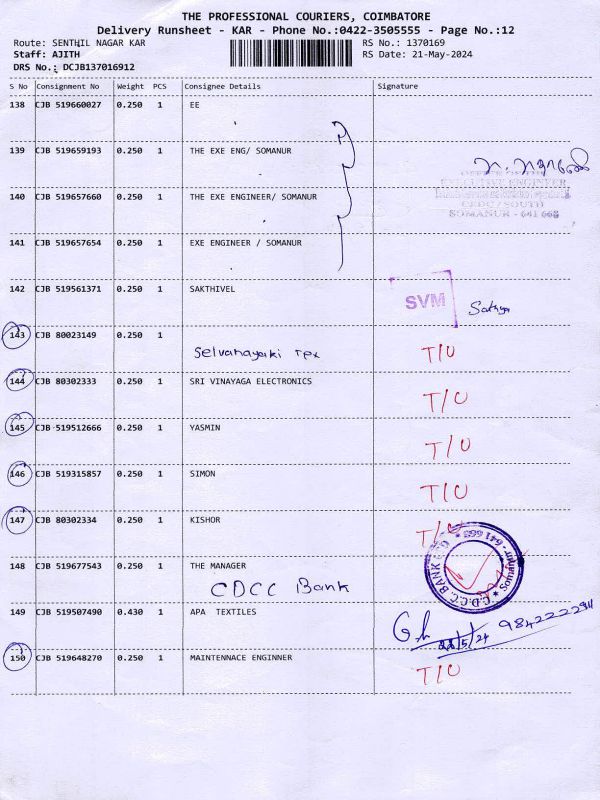 THE PROFESSIONAL COURIERS, COIMBATORE
Delivery Runsheet - KAR - Phone No.:0422-3505555 - Page No.:12
Route: SENTHIL NAGAR KAR
RS No.: 1370169
Staff: AJITH
RS Date: 21-May-2024
DRS No.: DCJB137016912
S No Consignment No Weight PCS Consignee Details Signature
138 CJB 519660027 0.250 1 EE
139 CJB 519659193 0.250 1 THE EXE ENG/ SOMANUR
OFFICE OF THE
EXECUTIVE ENGINEER
140 CJB 519657660 0.250 1 THE EXE ENGINEER/ SOMANUR
CEDC/SOUTH
SOMANUR - 641 668
141 CJB 519657654 0.250 1 EXE ENGINEER / SOMANUR
142 CJB 519561371 0.250 1 SAKTHIVEL SVM Sathya
143 CJB 80023149 0.250 1
Selvanayaki Tex T/U
144 CJB 80302333 0.250 1 SRI VINAYAGA ELECTRONICS T/U
145 CJB 519512666 0.250 1 YASMIN T/U
146 CJB 519315857 0.250 1 SIMON T/U
147 CJB 80302334 0.250 1 KISHOR T/U
148 CJB 519677543 0.250 1 THE MANAGER
CDCC Bank
149 CJB 519507490 0.430 1 APA TEXTILES
150 CJB 519648270 0.250 1 MAINTENNACE ENGINNER T/U